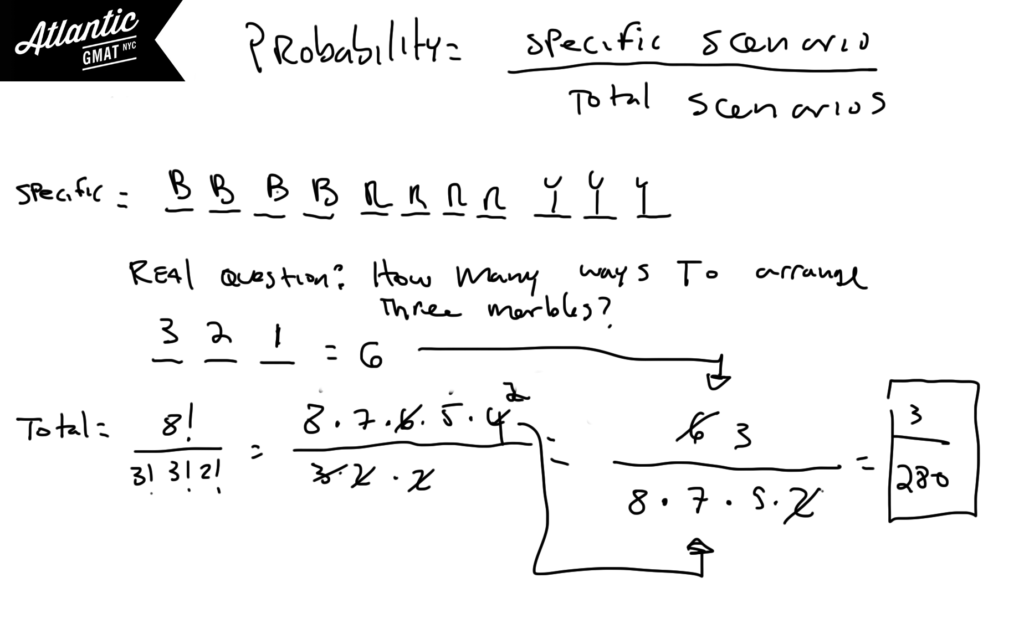 Atlantic
GMAT NYC
Probability = specific scenario / Total scenarios
specific = B B B B R R R R Y Y Y
REAl question? How many ways To arrange
Three marbles?
3 2 1 = 6
Total = 8! / 3! 3! 2! = 8 . 7 . 6 . 5 . 4 2 / 3 . 2 . 2 = 6 3 / 8 . 7 . 5 . 2 = 3 / 280